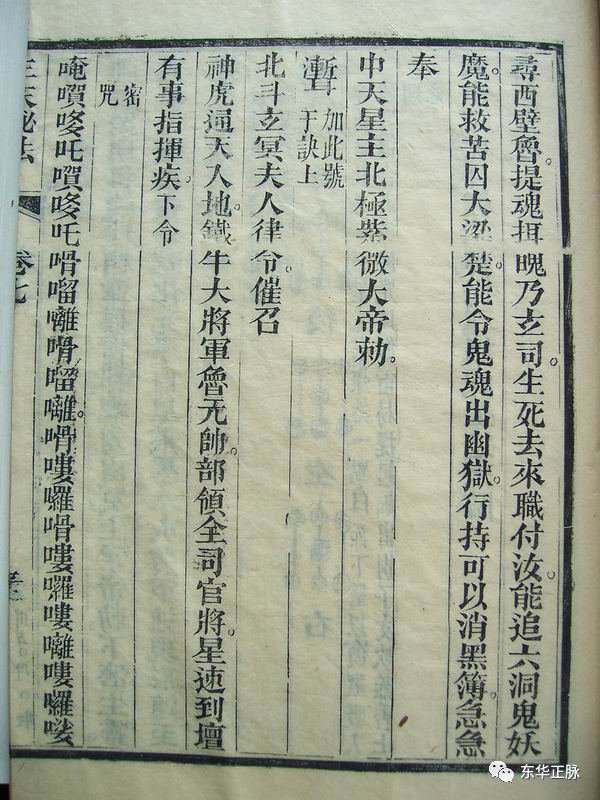 尋西壁魯提魂捉魄乃玄司生死去來職付汝能追六洞鬼妖
魔能救苦囚大梁楚能令鬼魂出幽獄行持可以消黑簿急急
奉
中天星主北極紫微大帝勅
加此號
于訣上
北斗玄冥夫人律令催召
神虎通天入地鐵牛大將軍魯元帥部領全司官將星速到壇
有事指揮疾下令
密
咒
唵嗊哆吒嗊哆吒嗗㗰囄嗗㗰囄嗗嘍囉嗗嘍囉嘍囄嘍囉娑
卷七
东华正脉